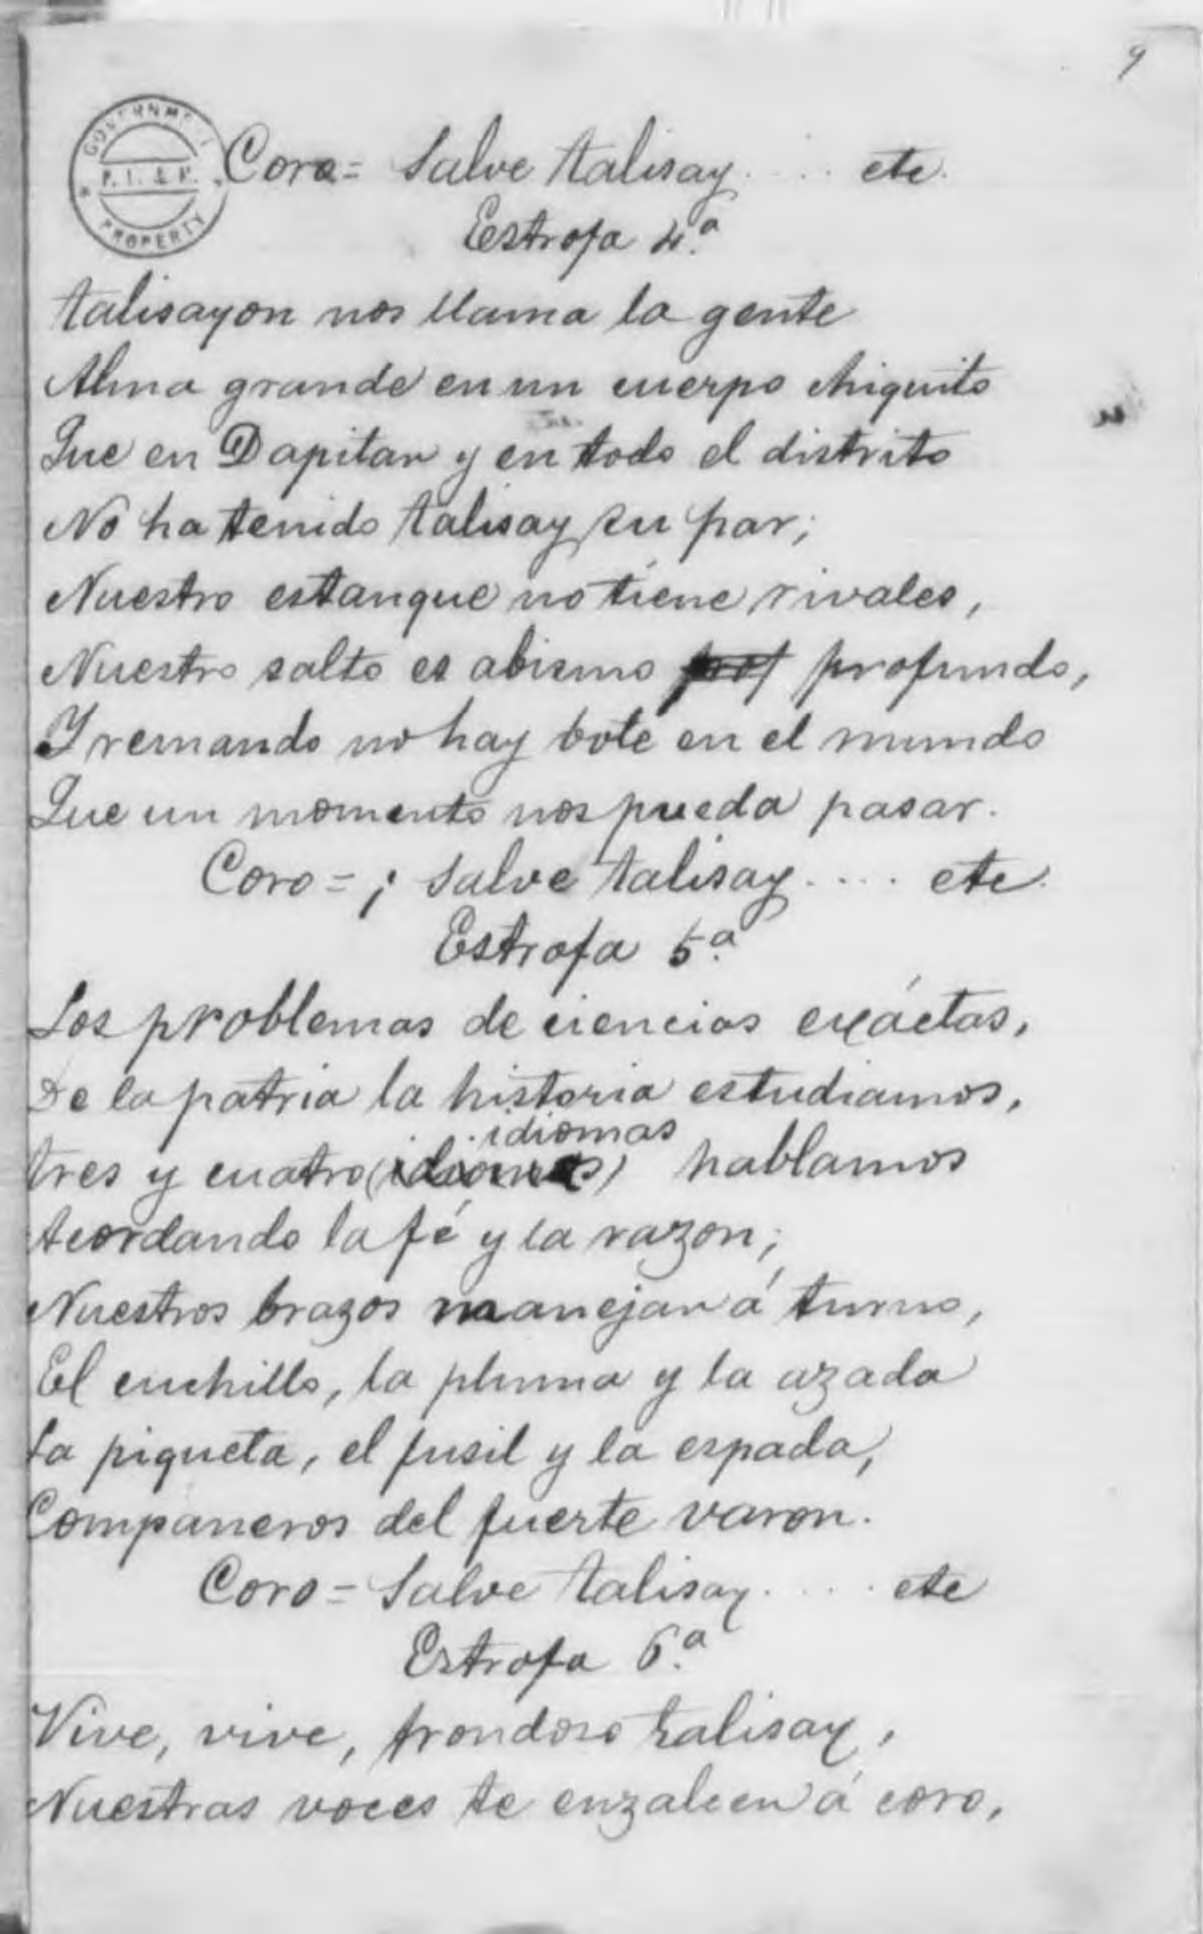 9
GOVERNMENT
P. I. & P.
PROPERTY
Coro = Salve Talisay .... etc.
Estrofa 4.ª
Talisayon nos llama la gente
Alma grande en un cuerpo chiquito
Que en Dapitan y en todo el distrito
No ha tenido Talisay su par;
Nuestro estanque no tiene rivales,
Nuestro salto es abismo prof profundo,
Y remando no hay bote en el mundo
Que un momento nos pueda pasar.
Coro = ¡ Salve Talisay .... etc.
Estrofa 5.ª
Los problemas de ciencias exáctas,
De la patria la historia estudiamos,
idiomas
Tres y cuatro (idiomas) hablamos
Acordando la fé y la razon;
Nuestros brazos manejan á turno,
El cuchillo, la pluma y la azada
La piqueta, el fusil y la espada,
Companeros del fuerte varon.
Coro = Salve Talisay .... etc
Estrofa 6.ª
Vive, vive, frondoso Talisay,
Nuestras voces te enzalcen á coro,